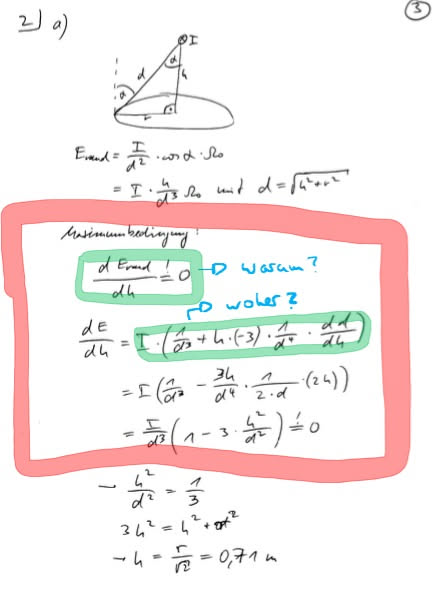 3
2) a)
I
α
d
h
α
r
E_Rand = I/d² · cos α · Ω₀
= I · h/d³ Ω₀ mit d = √(h²+r²)
Maximumbedingung:
d E_Rand / dh =! 0 → warum?
→ woher?
dE/dh = I · (1/d³ + h · (-3) · 1/d⁴ · dd/dh)
= I (1/d³ - 3h/d⁴ · 1/(2·d) · (2h))
= I/d³ (1 - 3 · h²/d²) =! 0
→ h²/d² = 1/3
3h² = h² + r²
→ h = r/√2 = 0,71 m